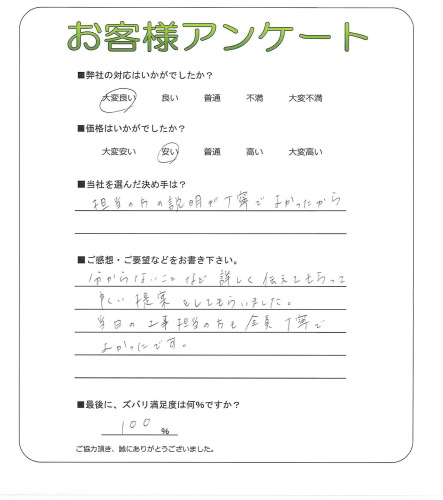 お客様アンケート
■弊社の対応はいかがでしたか？
大変良い 良い 普通 不満 大変不満
■価格はいかがでしたか？
大変安い 安い 普通 高い 大変高い
■当社を選んだ決め手は？
担当の方の説明が丁寧でよかったから
■ご感想・ご要望などをお書き下さい。
分からないことなど詳しく伝えてもらって
良い提案をしてもらいました。
当日の工事担当の方も全員丁寧で
よかったです。
■最後に、ズバリ満足度は何%ですか？
100 %
ご協力頂き、誠にありがとうございました。